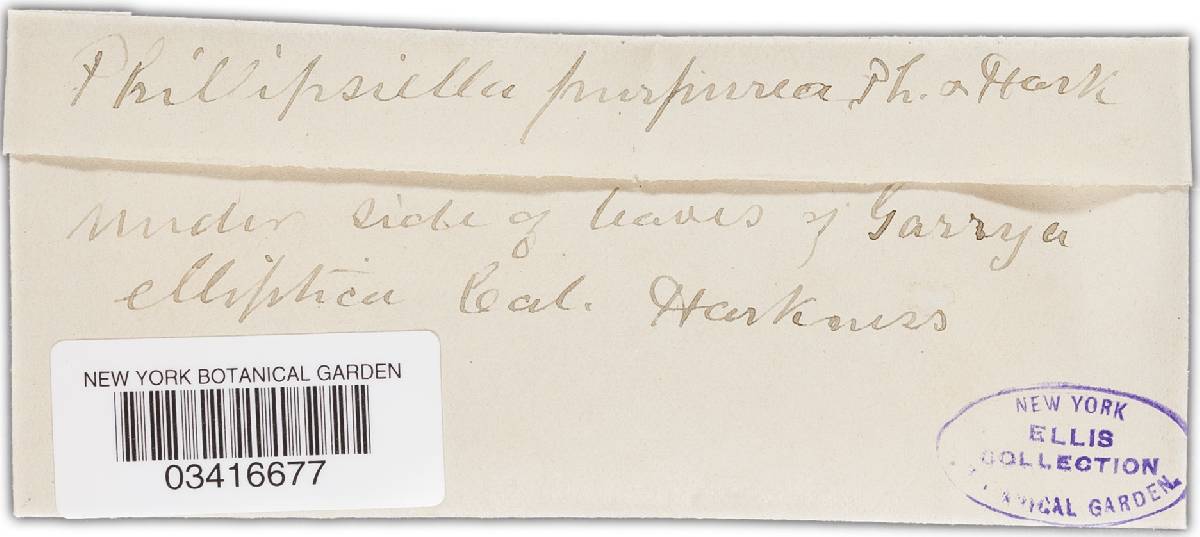 Phillipsiella purpurea Ph. & Hark
under side of leaves of Garrya
elliptica Cal. Harkness
NEW YORK BOTANICAL GARDEN
03416677
NEW YORK
ELLIS
COLLECTION
BOTANICAL GARDEN